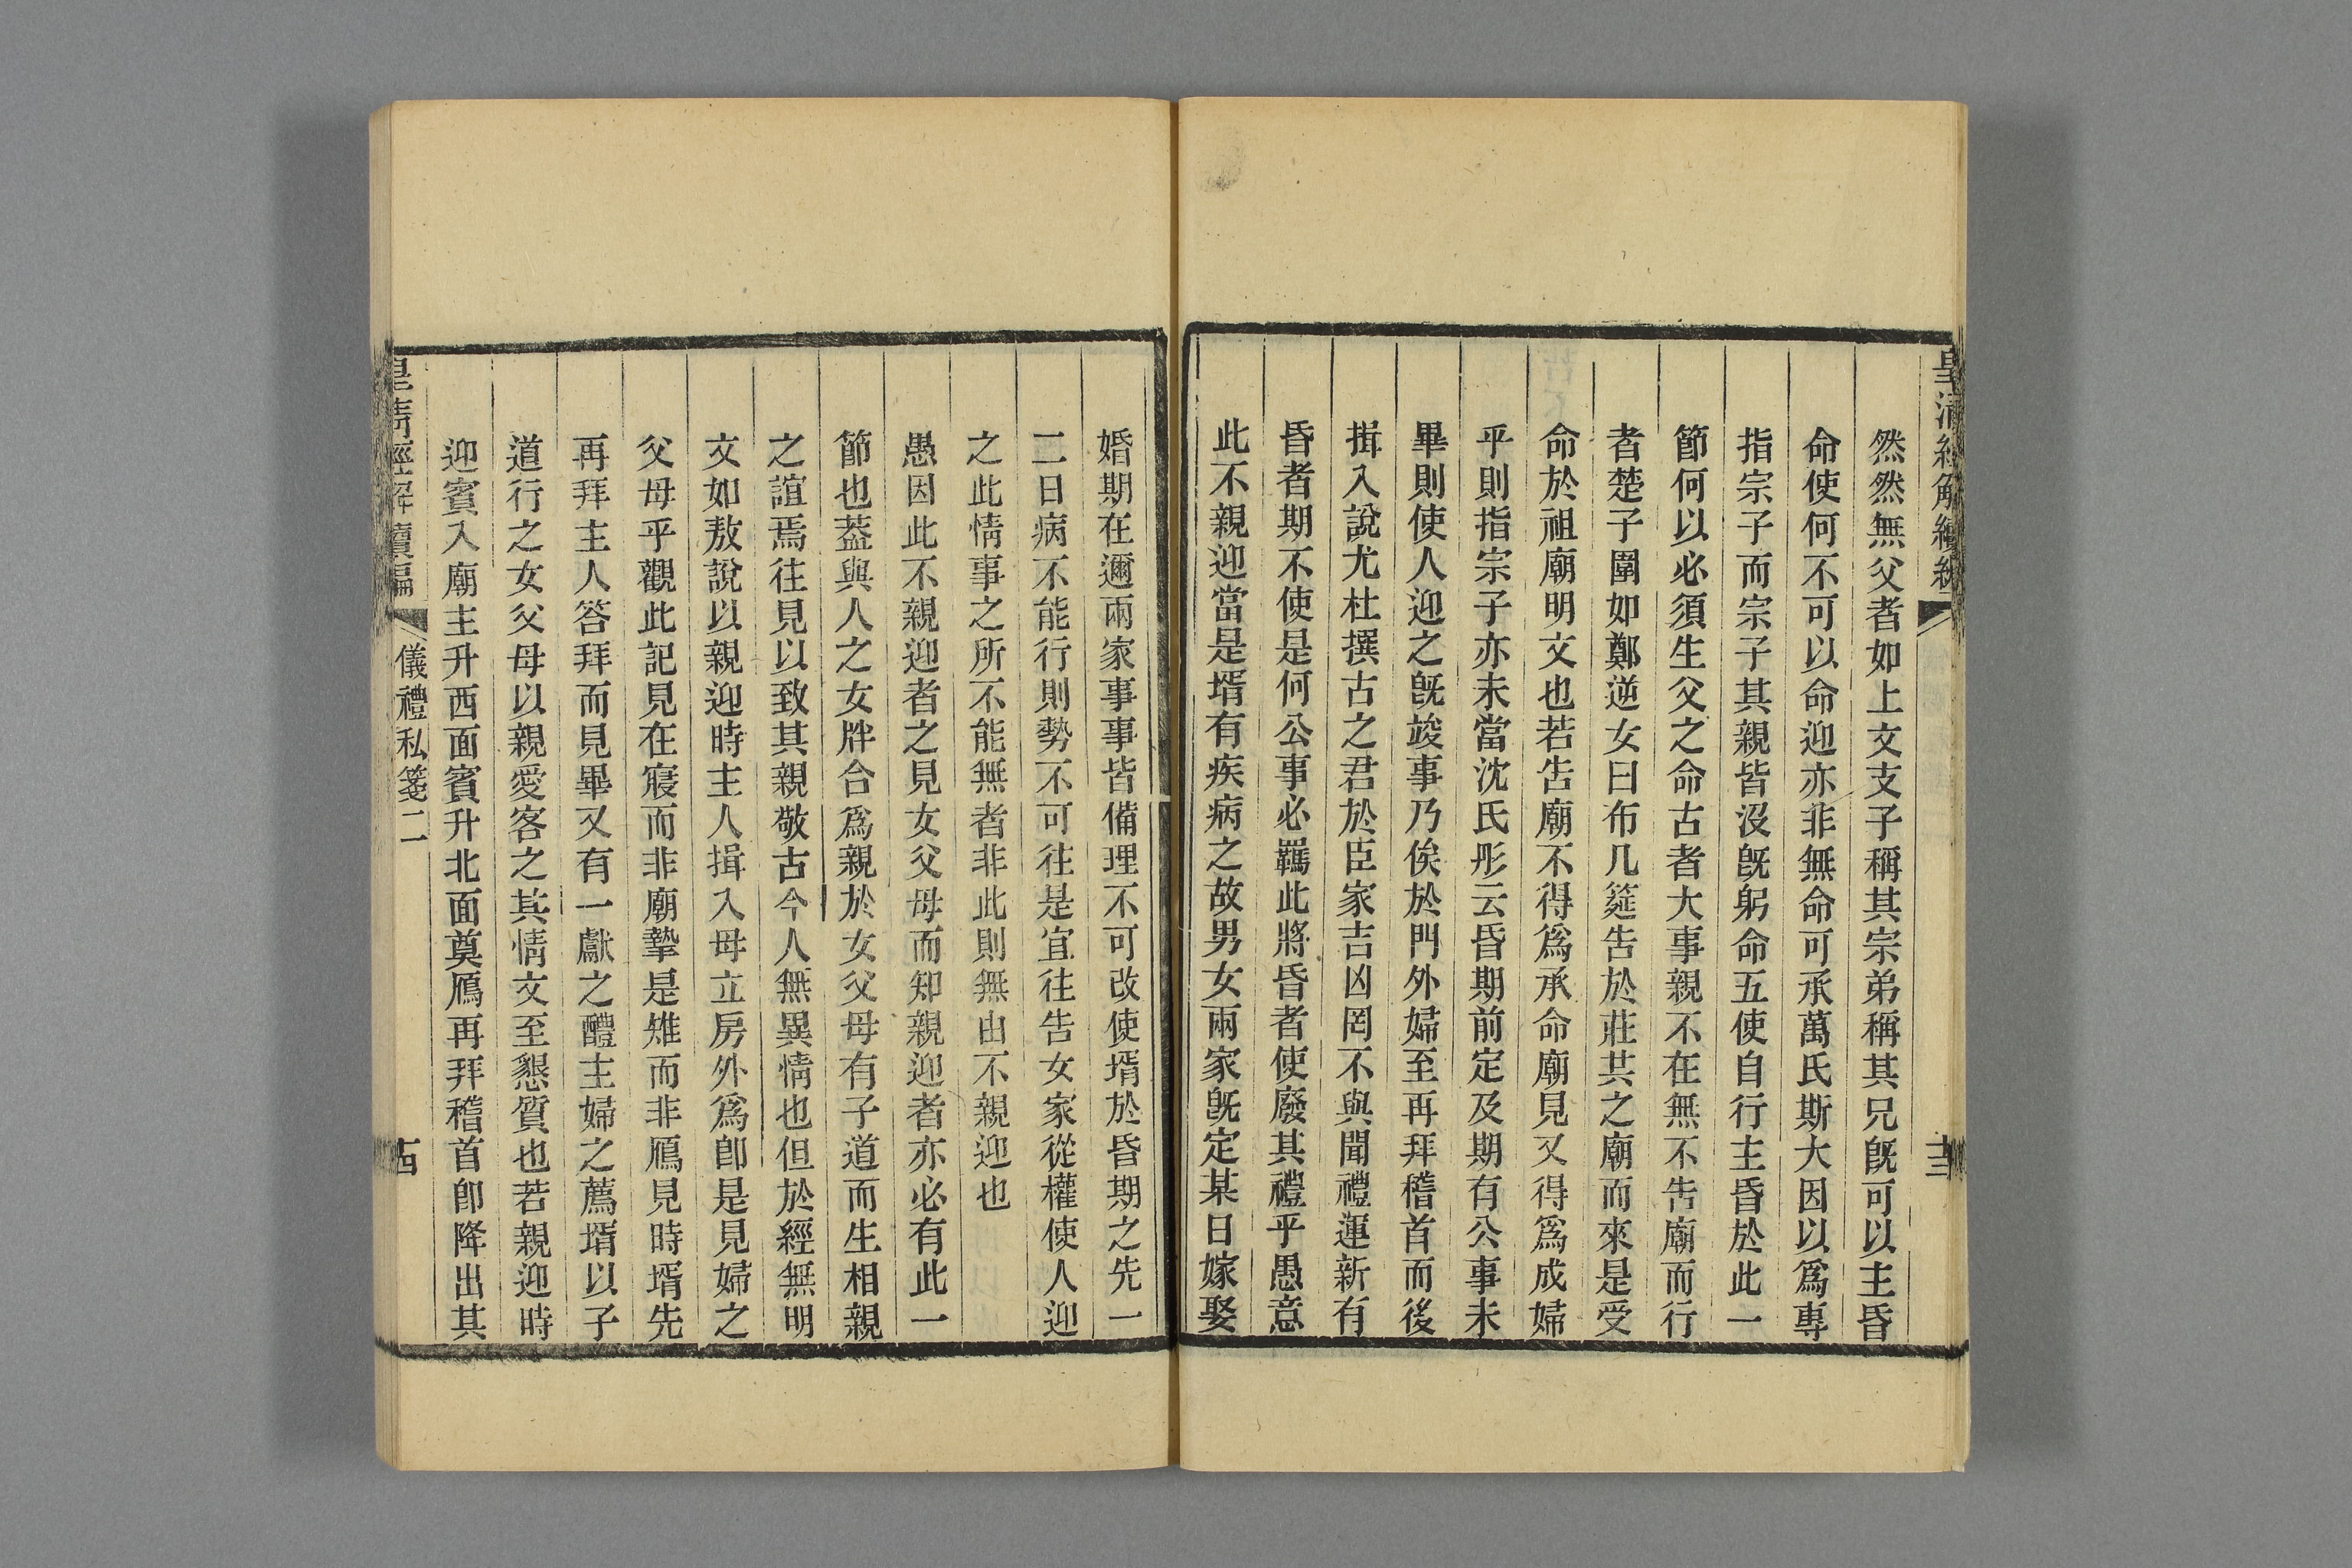 皇清經解續編
十三
然然無父者如上文支子稱其宗弟稱其兄旣可以主昏
命使何不可以命迎亦非無命可承萬氏斯大因以爲專
指宗子而宗子其親皆沒旣躬命五使自行主昏於此一
節何以必須生父之命古者大事親不在無不告廟而行
者楚子圍如鄭逆女曰布几筵告於莊共之廟而來是受
命於祖廟明文也若告廟不得爲承命廟見又得爲成婦
乎則指宗子亦未當沈氏彤云昏期前定及期有公事未
畢則使人迎之旣竣事乃俟於門外婦至再拜稽首而後
揖入說尤杜撰古之君於臣家吉凶罔不與聞禮運新有
昏者期不使是何公事必羈此將昏者使廢其禮乎愚意
此不親迎當是壻有疾病之故男女兩家旣定某日嫁娶
婚期在邇兩家事事皆備理不可改使壻於昏期之先一
二日病不能行則勢不可往是宜往告女家從權使人迎
之此情事之所不能無者非此則無由不親迎也
愚因此不親迎者之見女父母而知親迎者亦必有此一
節也葢與人之女牉合爲親於女父母有子道而生相親
之誼焉往見以致其親敬古今人無異情也但於經無明
文如敖說以親迎時主人揖入母立房外爲卽是見婦之
父母乎觀此記見在寢而非廟摯是雉而非鴈見時壻先
再拜主人答拜而見畢又有一獻之醴主婦之薦壻以子
道行之女父母以親愛客之其情文至懇質也若親迎時
迎賓入廟主升西面賓升北面奠鴈再拜稽首卽降出其
皇清經解續編
儀禮私箋二
十四